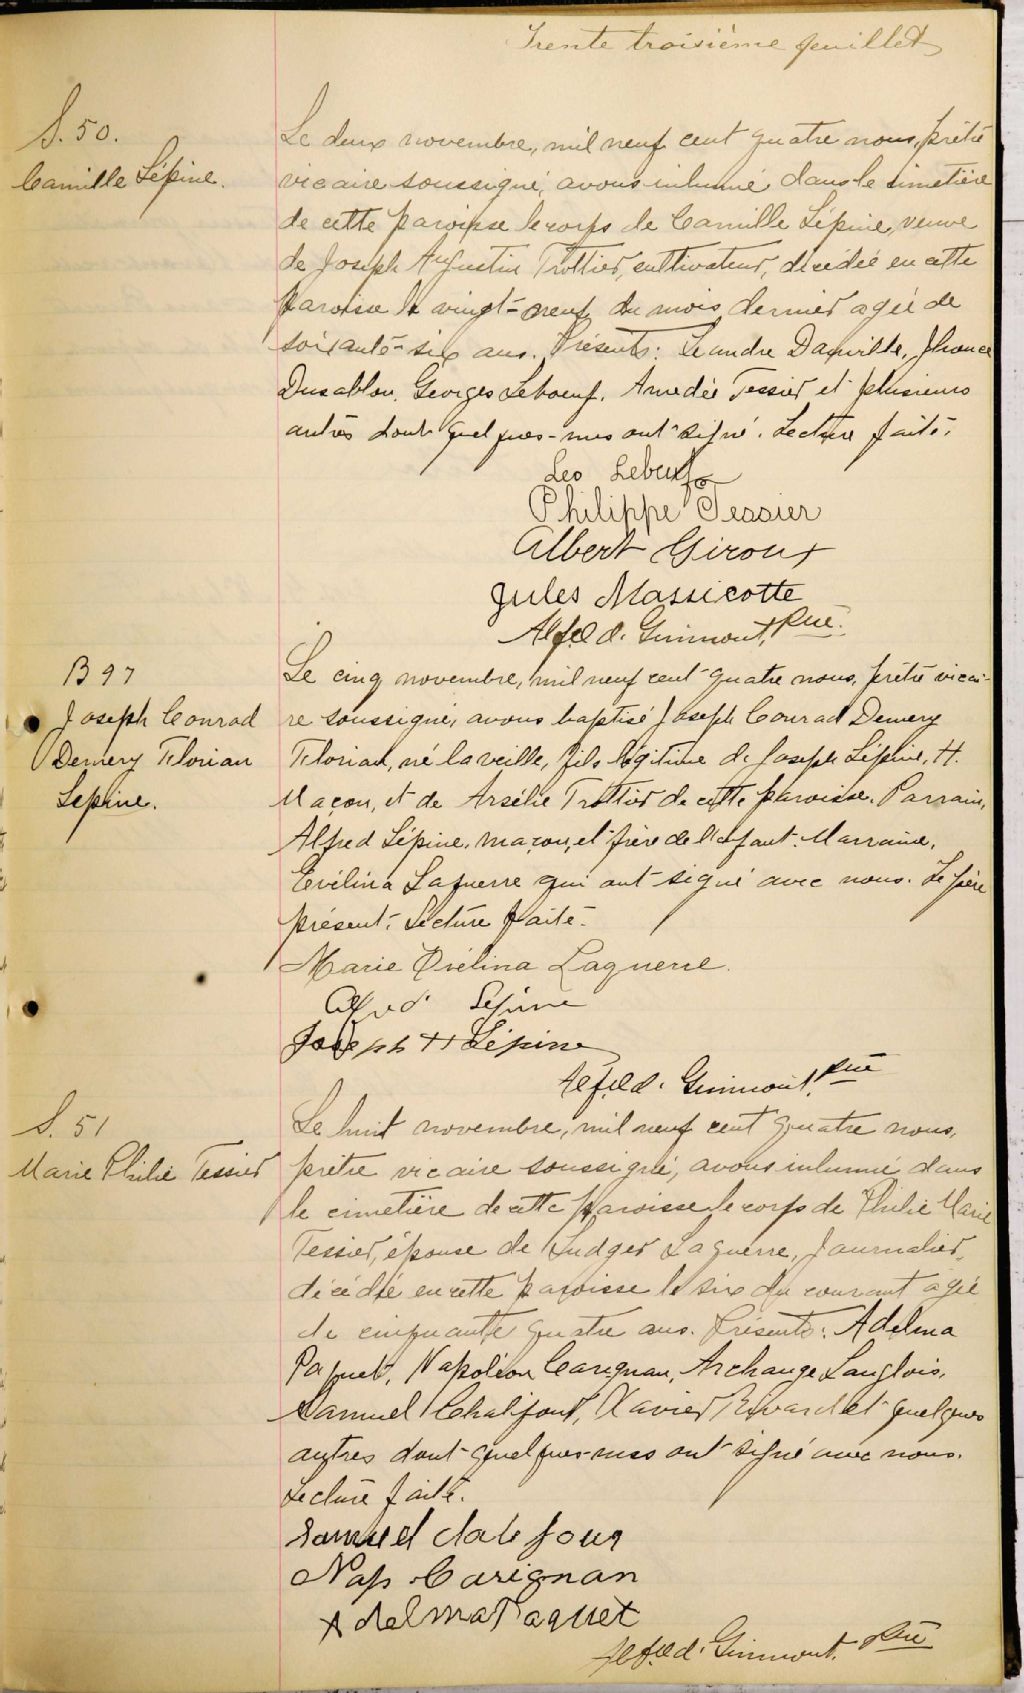 Trente troisième feuillet
S. 50.
Camille Lépine.
Le deux novembre, mil neuf cent quatre nous, prêtre
vicaire soussigné, avons inhumé dans le cimetière
de cette paroisse le corps de Camille Lépine, veuve
de Joseph Augustin Trottier, cultivateur, décédée en cette
paroisse le vingt-neuf du mois dernier agée de
soixante-six ans. Présents: Leandre Danville,
Dusablon, Georges Leboeuf, Amedée Tessier et plusieurs
autres dont quelques-uns ont signé. Lecture faite.
Leo Lebeuf
Philippe Tessier
Albert Giroux
Jules Massicotte
Alfd. Guimont, Ptre.
B 97
Joseph Conrad
Demery Florian
Lepine.
Le cinq novembre, mil neuf cent quatre nous, prêtre vicai-
re soussigné, avons baptisé Joseph Conrad Demery
Florian, né la veille, fils légitime de Joseph Lépine, H.
Maçon, et de Arsélie Trottier de cette paroisse. Parrain,
Alfred Lépine, maçon, et frère de l'enfant. Marraine,
Evélina Laguerre qui ont signé avec nous. Le père
présent. Lecture faite.
Marie Evélina Laguerre.
Alfred Lépine
Joseph H Lépine
Alfd. Guimont, Ptre
S. 51
Marie Philie Tessier
Le huit novembre, mil neuf cent quatre nous,
prêtre vicaire soussigné, avons inhumé dans
le cimetière de cette paroisse le corps de Philie Marie
Tessier, épouse de Ludger Laguerre, Journalier,
décédée en cette paroisse le six du courant agée
de cinquante quatre ans. Présents: Adelma
Paquet, Napoléon Carignan, Archange Langlois,
Samuel Chalifour, Xavier Rivard et quelques
autres dont quelques-uns ont signé avec nous.
Lecture faite.
Samuel Chalifour
Nap. Carignan
Adelma Paquet
Alfd. Guimont, Ptre